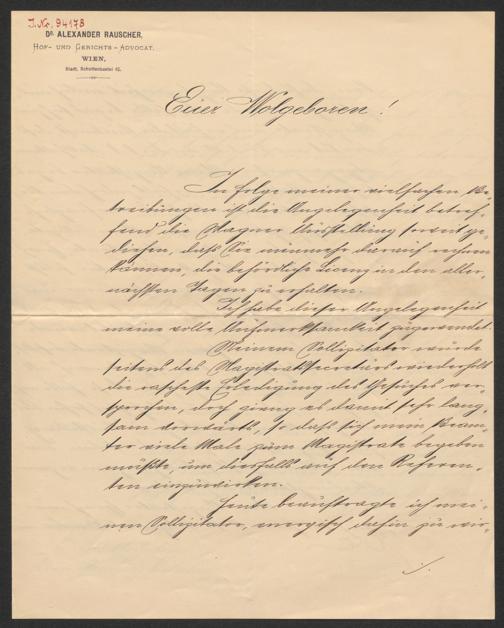 J. Nr. 94178
DR. ALEXANDER RAUSCHER,
HOF- UND GERICHTS-ADVOCAT.
WIEN,
Stadt, Schottenbastei
Euer Wolgeboren!
In folge meiner vielfachen Be-
treibungen ist die Angelegenheit betref-
fend die Wagner Ausstellung soweit ge-
diehen, daß Sie nunmehr darauf rechnen
können, die behördliche Licenz in den aller-
nächsten Tagen zu erhalten.
Ich habe dieser Angelegenheit
meine volle Aufmerksamkeit zugewendet.
Meinem Sollizitator wurde
seitens des Magistratssecretärs wiederholt
die rascheste Erledigung des Gesuches ver-
sprochen, doch gieng es damit sehr lang-
sam vorwärts, so daß sich mein Beam-
ter viele Male zum Magistrate begeben
mußte, um diesfalls auf den Referen-
ten einzuwirken.
Heute beauftragte ich mei-
nen Sollizitator, energisch dahin zu wir-